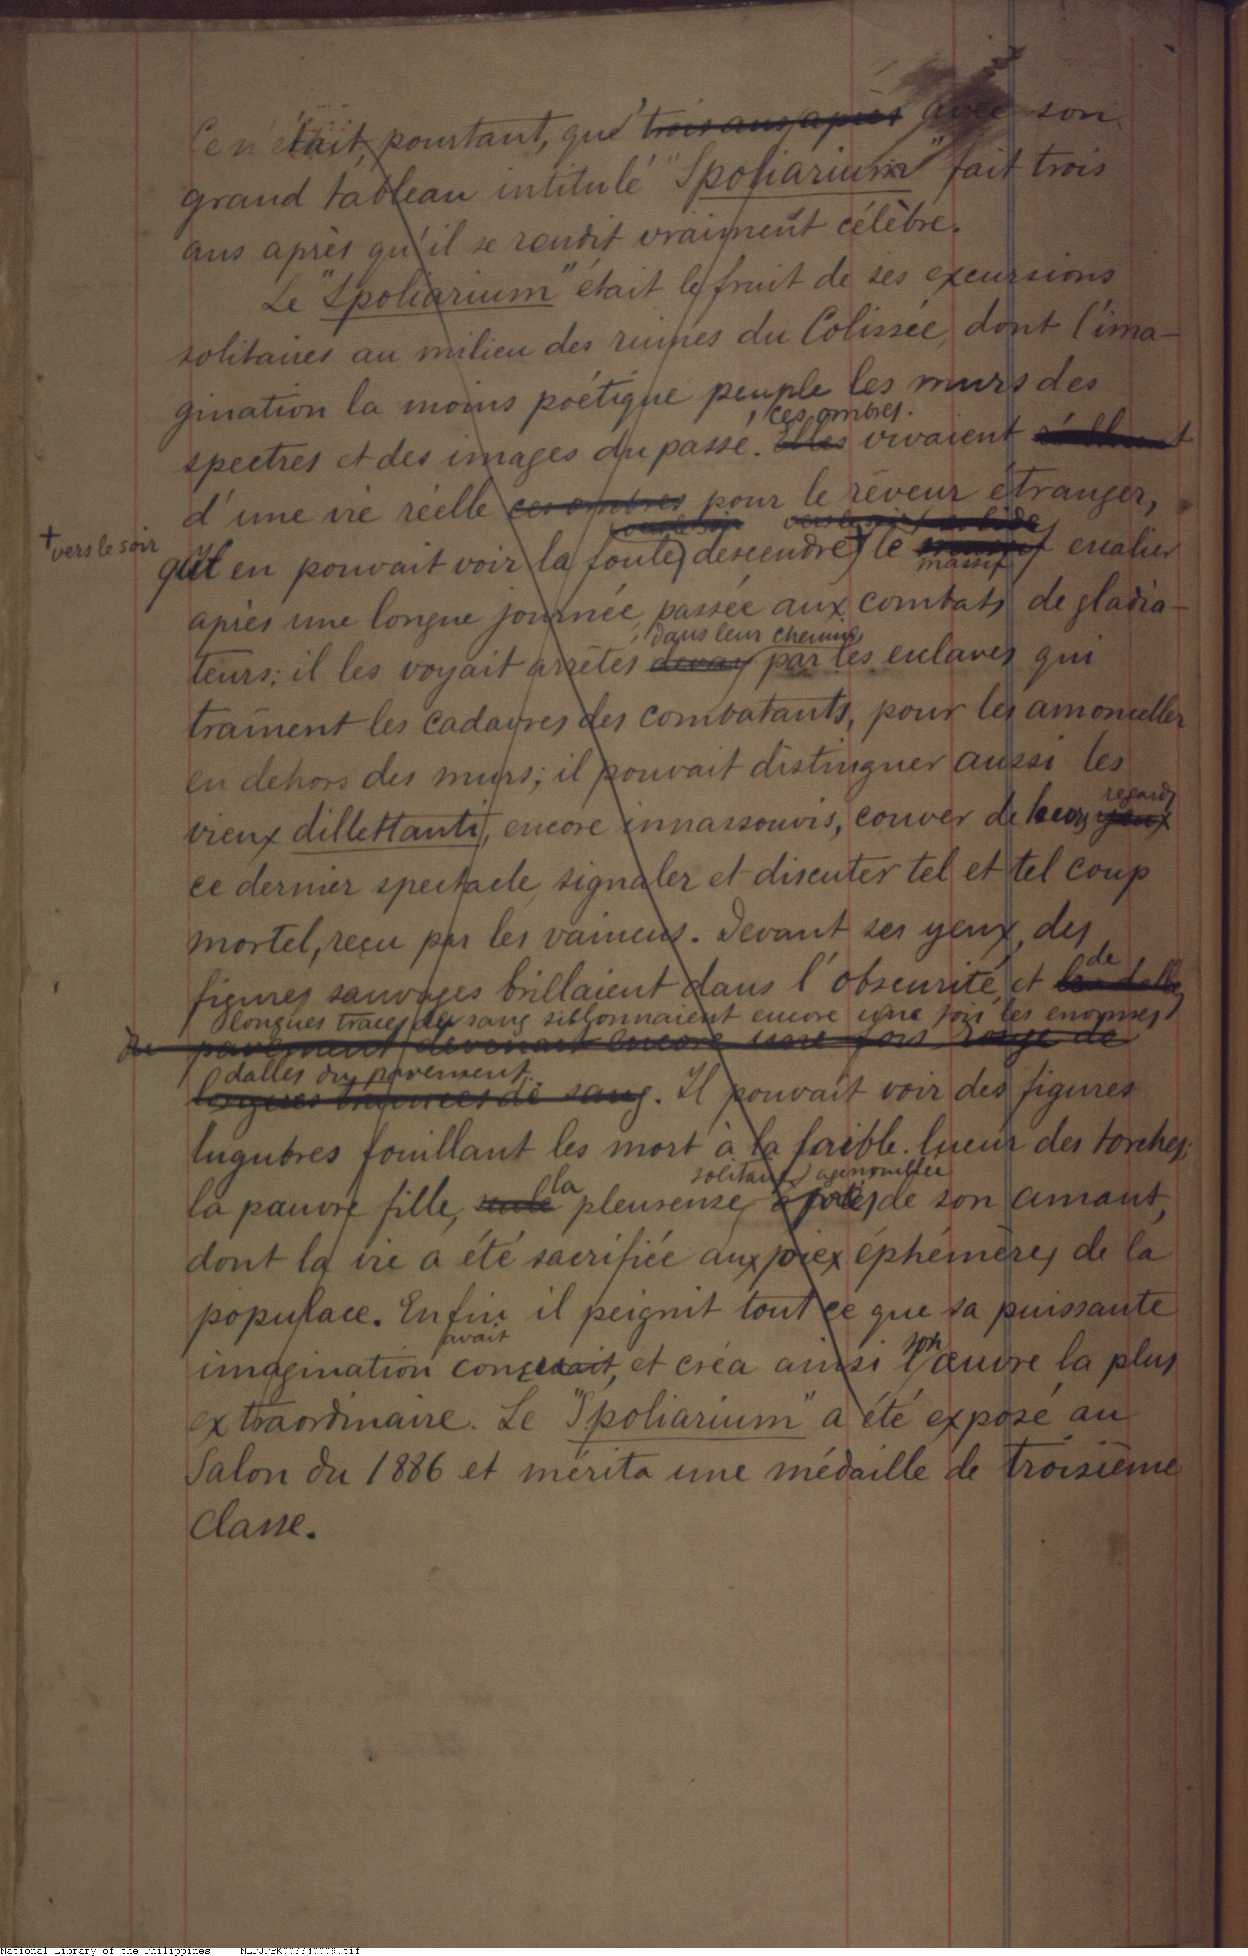 Ce n'était, pourtant, que trois ans après avec son
grand tableau intitulé "Spoliarium" fait trois
ans après qu'il se rendit vraiment célèbre.
Le "Spoliarium" était le fruit de ses excursions
solitaires au milieu des ruines du Colissée, dont l'ima-
gination la moins poétique peuple les murs des
ces ombres.
spectres et des images du passé. Elles vivaient
d'une vie réelle ces ombres pour le rêveur étranger,
+ vers le soir
qu'il en pouvait voir la foule, descendre le escalier
massif
après une longue journée passée aux combats de gladia-
dans leur chemin
teurs; il les voyait arrêtés par les esclaves qui
traînent les cadavres des combatants, pour les amonceller
en dehors des murs; il pouvait distinguer aussi les
regards
vieux dillettanti, encore innassouvis, couver de leurs yeux
ce dernier spectacle, signaler et discuter tel et tel coup
mortel, reçu par les vaincus. Devant ses yeux, des
de
figures sauvages brillaient dans l'obscurité, et les dalles
longues traces de sang sillonnaient encore une fois les enormes
du pavement devenait encore une fois rouge de
dalles du pavement.
longues de sang. Il pouvait voir des figures
lugubres fouillant les mort à la faible lueur des torches;
la solitaire, agenouillée
la pauvre fille, seule pleureuse, de son amant,
dont la vie a été sacrifiée aux joiex éphémères de la
populace. Enfin il peignit tout ce que sa puissante
avait son
imagination concevait, et créa ainsi l'œuvre la plus
extraordinaire. Le "Spoliarium" a été exposé au
Salon du 1886 et mérita une médaille de troisième
classe.
National Library of the Philippines